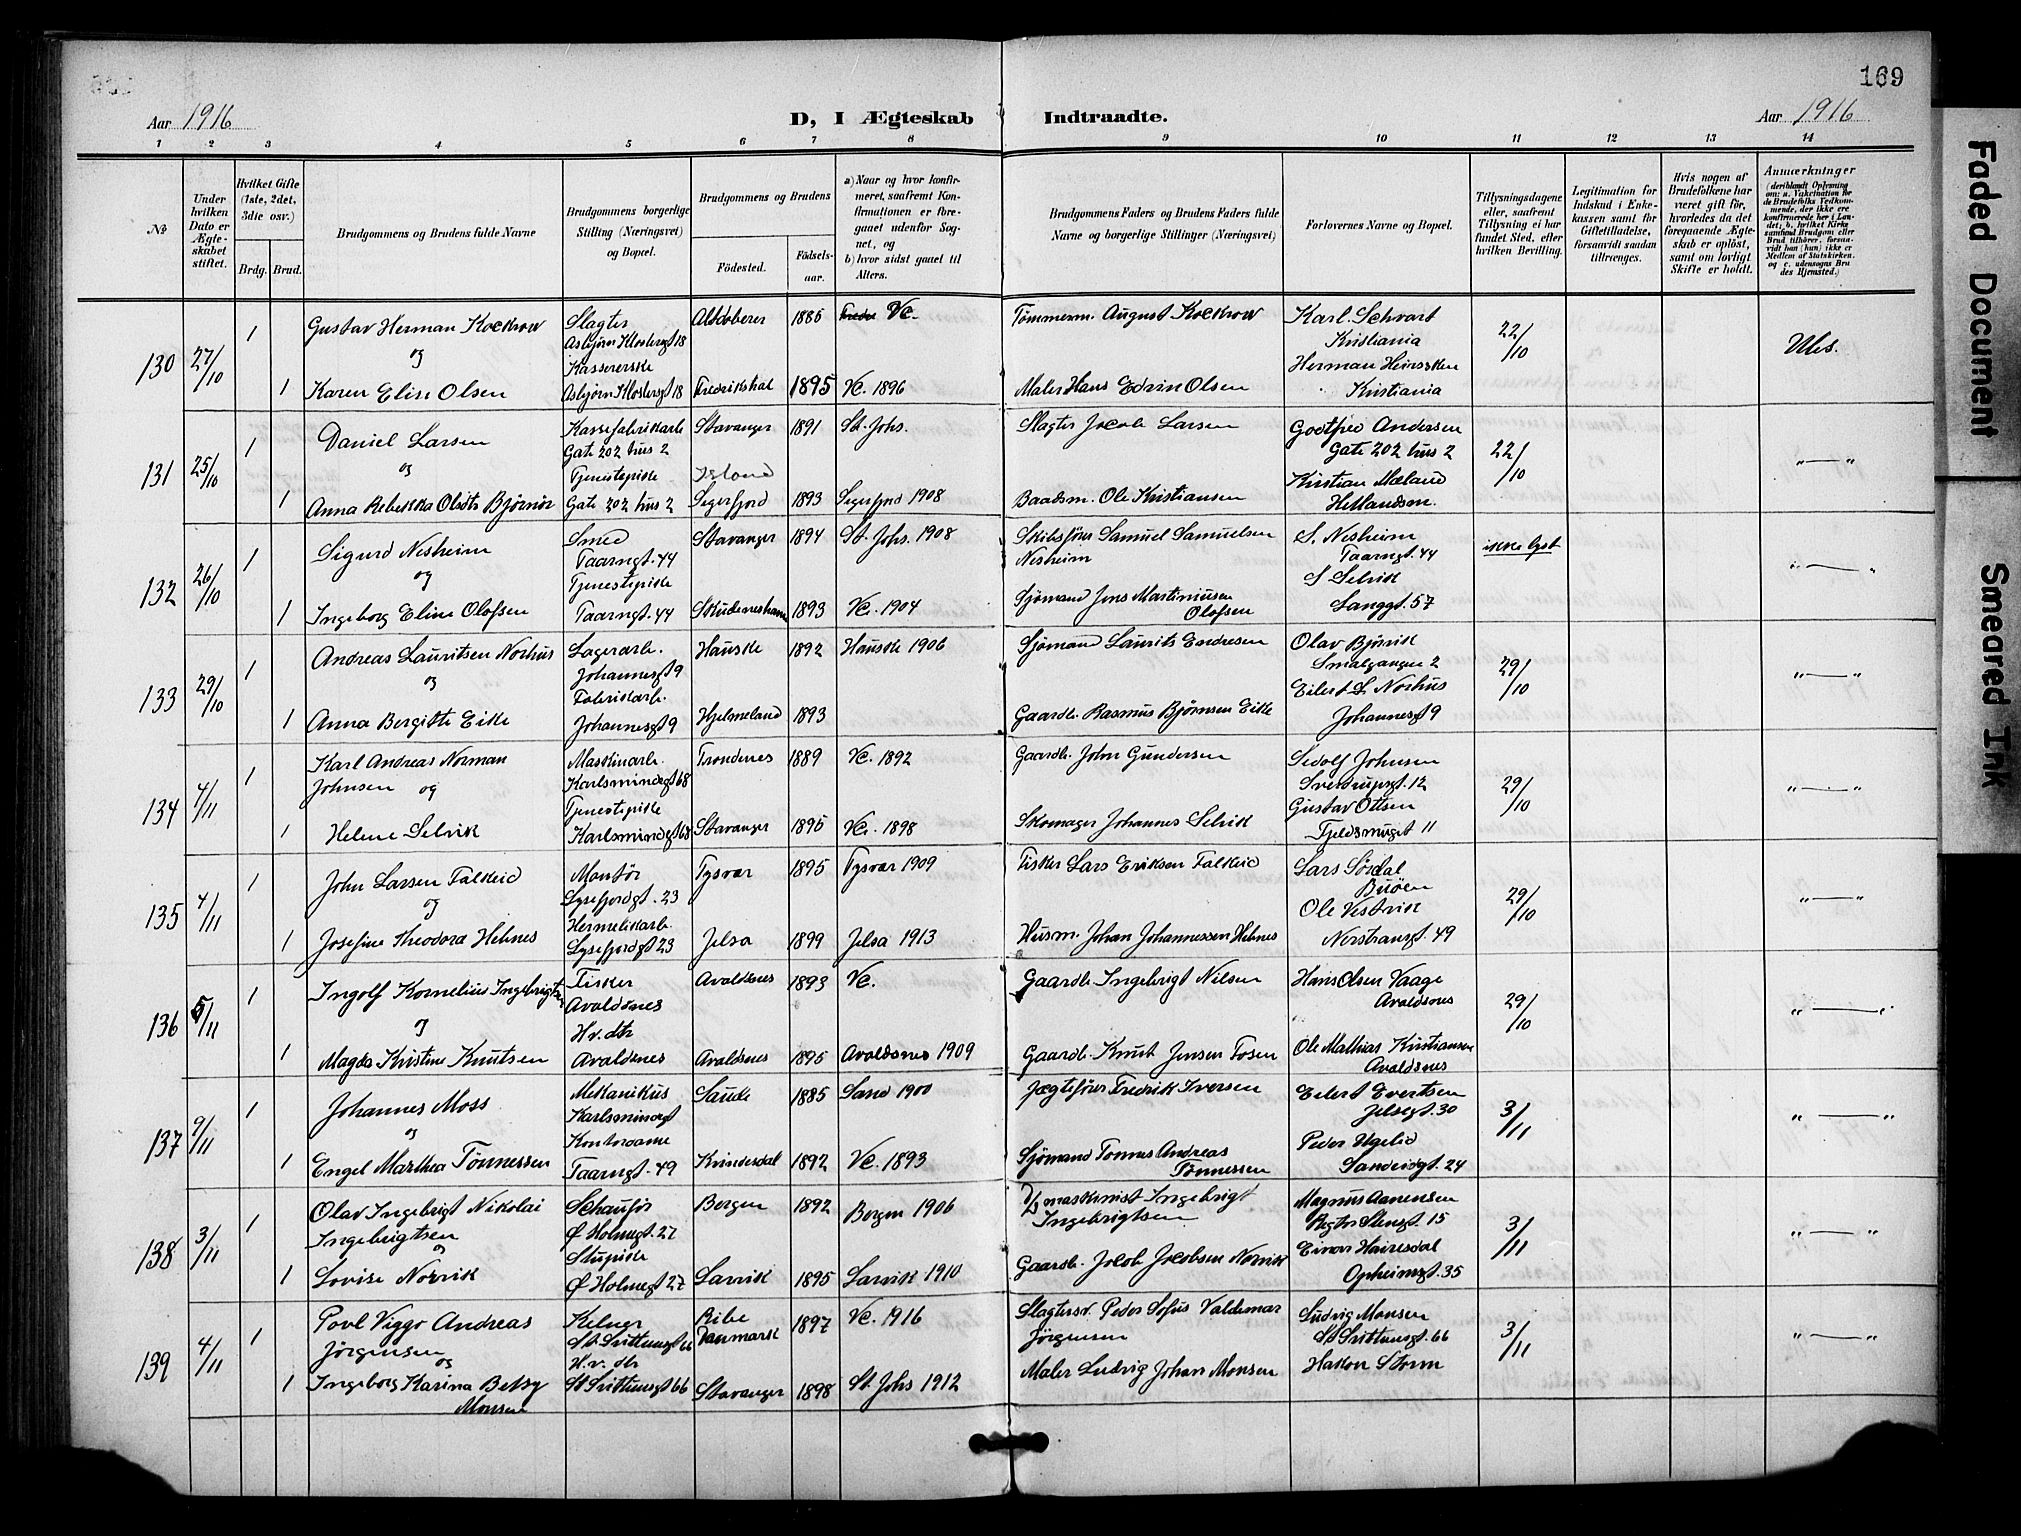 169
Aar 1916
D, I Ægteskab Indtraadte.
Aar 1916
1 2 3 4 5 6 7 8 9 10 11 12 13 14
№
Under hvilken Dato er Ægteskabet stiftet.
Hvilket Gifte (1ste, 2det, 3die osv.)
Brdg. Brud.
Brudgommens og Brudens fulde Navne
Brudgommens borgerlige Stilling (Næringsvei) og Bopæl.
Brudgommens og Brudens
Fødested. Fødselsaar.
a) Naar og hvor konfirmeret, saafremt Konfirmationen er foregaaet udenfor Sognet, og
b) hvor sidst gaaet til Alters.
Brudgommens Faders og Brudens Faders fulde Navne og borgerlige Stillinger (Næringsvei)
Forlovernes Navne og Bopæl.
Tillysningsdagene eller, saafremt Tillysning ei har fundet Sted, efter hvilken Bevilling.
Legitimation for Indskud i Enkekassen samt for Giftetilladelse, forsaavidt saadan tiltrænges.
Hvis nogen af Brudefolkene har været gift før, hvorledes da det foregaaende Ægteskab er opløst, samt om lovligt Skifte er holdt.
Anmærkninger
(deriblandt Oplysning om: a. Vakcination for de Brudefolks Vedkommende, der ikke ere konfirmerede her i Landet; b. hvilket Kirkesamfund Brudgom eller Brud tilhører, forsaavidt han (hun) ikke er Medlem af Statskirken, og c. udensogns Brudes Hjemsted.)
130 27/10 1 Gustav Herman Kockrow Slagter Altdøberer 1886 Vc. Tømmerm. August Kockrow Karl Schvart 22/10 Utes.
og Asbjørn Klostersgt 18 Kristiania
Kassererske Herman Heinssken
1 Karen Elise Olsen Asbjørn Klostersgt 18 Fredrikshal 1895 Vc. 1896 Maler Hans Edvin Olsen Kristiania
131 25/10 1 Daniel Larsen Kassefabrikarb Stavanger 1891 St. Johs. Slagter Jacob Larsen Godtfred Andersen 22/10 „ — „
og Gate 202 hus 2 Gate 202 hus 2
Tjenestepike Island Kristian Mæland
1 Anna Rebekka Olsdtr Bjørnør Gate 202 hus 2 Segerfjord 1893 Segerfjord 1908 Baadsm. Ole Kristiansen Hetlandsm.
132 26/10 1 Sigurd Nesheim Smed Stavanger 1894 St. Johs. 1908 Skibsfører Samuel Samuelsen S. Nesheim ikke lyst „ — „
og Taarngt. 44 Nesheim Taarngt. 44
Tjenestepike Sjømand Jens Martiniusen S Selvik
1 Ingeborg Eline Olofsen Taarngt. 44 Skudeneshavn 1893 Vc. 1904 Olofsen Langgt. 57
133 29/10 1 Andreas Lauritsen Norhus Lagerarb. Hauske 1892 Hauske 1906 Sjømand Laurits Endresen Olav Bjørvik 29/10 „ — „
og Johannesgt 9 Smalgangen 2
Fabrikarb. Eilert L. Norhus
1 Anna Bergitte Eike Johannesgt 9 Hjelmeland 1893 Gaardb. Rasmus Bjørnsen Eike Johannesgt 9
134 4/11 1 Karl Andreas Norman Maskinarb. Trondenes 1889 Vc. 1892 Gaardb. John Gundersen Sedolf Johnsen 29/10 „ — „
Johnsen og Karlsmindegt 68 Sverdrupsgt. 12
Tjenestepike Gustav Ottsen
1 Helene Selvik Karlsmindegt 68 Stavanger 1895 Vc. 1898 Skomager Johannes Selvik Fjeldsmuget 11
135 4/11 1 John Larsen Falkeid Montør Tysvær 1895 Tysvær 1909 Fisker Lars Eriksen Falkeid Lars Sørdal 29/10 „ — „
og Lysefjordgt. 23 Buøen
Hermetikarb. Ole Vestvik
1 Josefine Theodora Hebnes Lysefjordgt 23 Jelsa 1899 Jelsa 1913 Husm. Johan Johannessen Hebnes Nerstransgt. 49
136 5/11 1 Ingolf Kornelius Ingebrigtsen Fisker Avaldsnes 1893 Vc. Gaardb. Ingebrigt Nilsen Hans Olsen Vaage 29/10 „ — „
og Avaldsnes Avaldsnes
Hv. dtr
1 Magda Kristine Knutsen Avaldsnes Avaldsnes 1895 Avaldsnes 1909 Gaardb. Knut Jensen Fosen Ole Mathias Kristiansen
Avaldsnes
137 9/11 1 Johannes Moss Mekanikus Saude 1885 Sand 1900 Jægtefører Fredrik Iversen Eilert Evertsen 3/11 „ — „
og Karlsmindegt Jelsegt. 30
Kontordame Sjømand Tønnes Andreas Peder Ugelid
1 Engel Marthea Tønnessen Taarngt. 49 Kvindesdal 1892 Vc. 1893 Tønnessen Sandeidgt. 24
138 3/11 1 Olav Ingebrigt Nikolai Schauför Bergen 1892 Bergen 1906 D/s maskinist Ingebrigt Magnus Aanensen 3/11 „ — „
Ingebrigtsen Ø Holmegt. 27 Ingebrigtsen Stengt. 15
og Stupike Einar Hairesdal
1 Lovise Norvik Ø Holmegt 27 Larvik 1895 Larvik 1910 Gaardb. Jacob Jacobsen Norvik Opheimsgt. 35
139 4/11 1 Povl Viggo Andreas Kelner Ribe 1897 Vc. 1916 Slagtersv. Peder Sofus Valdemar Ludvig Monsen 3/11 „ — „
Jørgensen St. Svithunsgt 66 Danmark Jørgensen St Svithunsgt. 66
og H.v. dtr Maler Ludvig Johan Monsen Hakon Storm
1 Ingeborg Karina Betsy St Svithunsgt 66 Stavanger 1898 St Johs 1912
Monsen
Faded Document
Smeared Ink